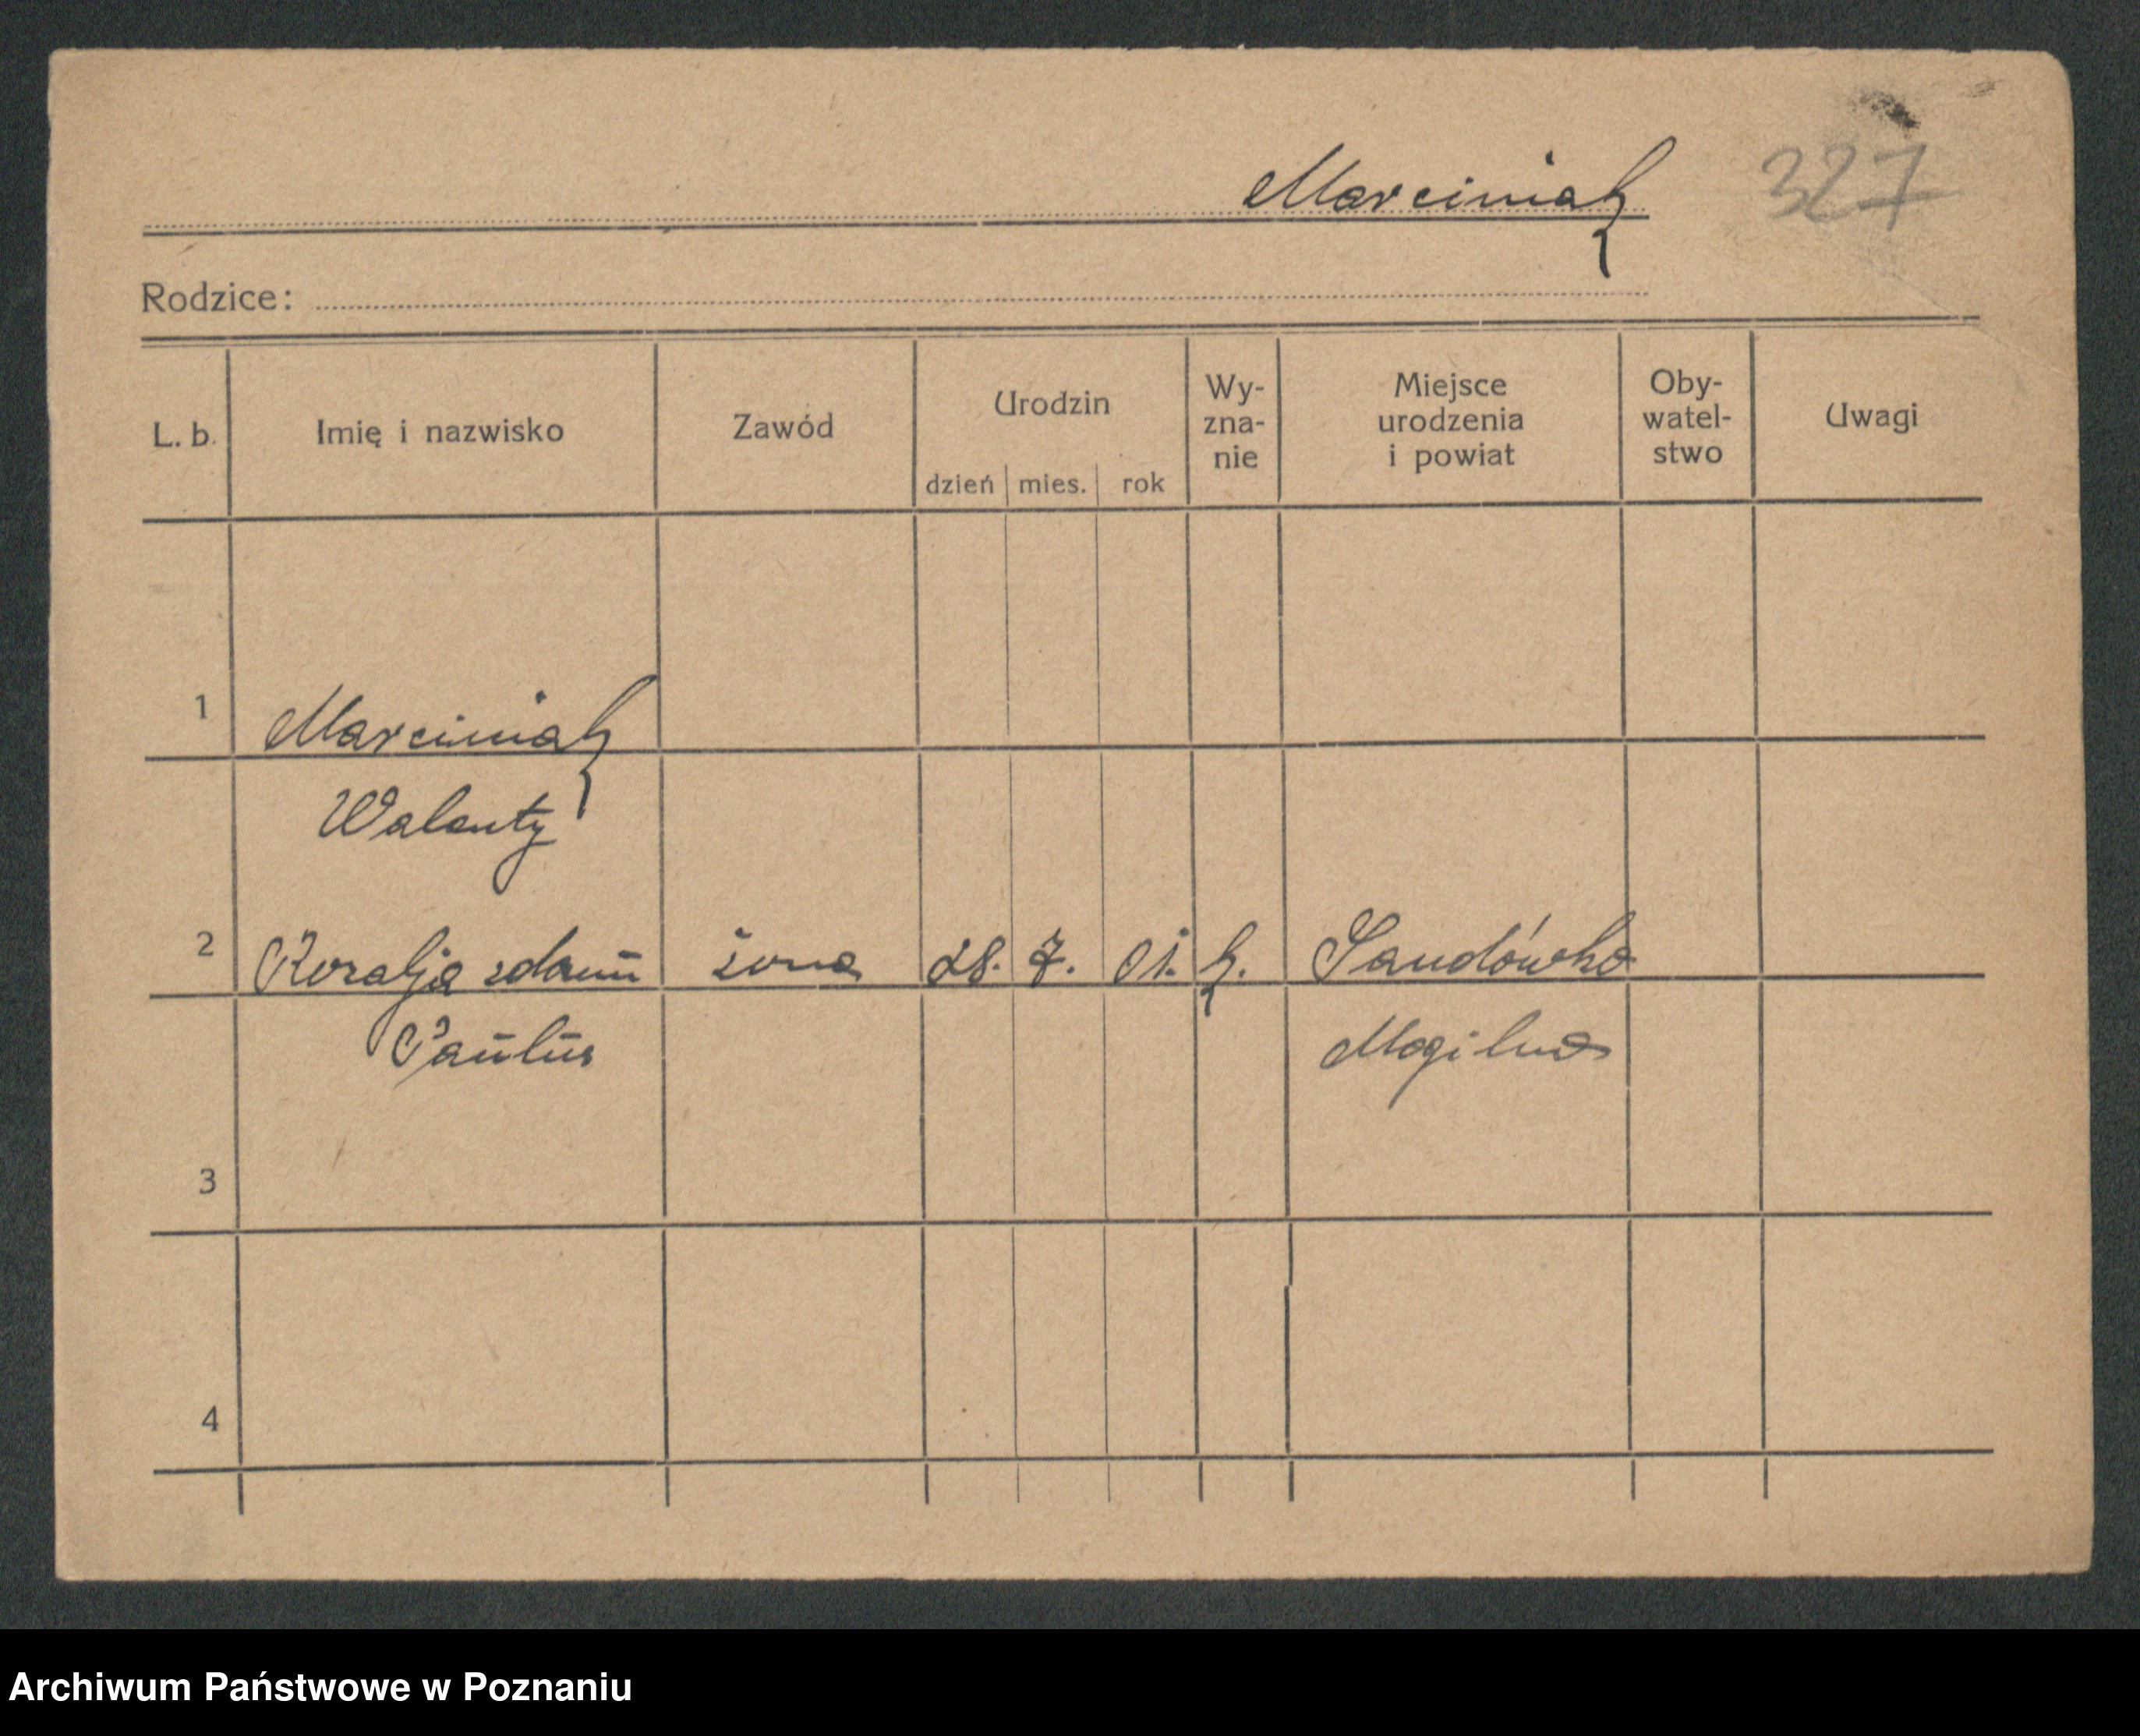 Marciniak 327
Rodzice:
L. b. Imię i nazwisko Zawód Urodzin dzień mies. rok Wy-zna-nie Miejsce urodzenia i powiat Oby-watel-stwo Uwagi
1 Marciniak
Walenty
2 Rozalja zdomu żona 28. 7. 01. k. Sandówko
Paulus Mogilno
3
4
Archiwum Państwowe w Poznaniu